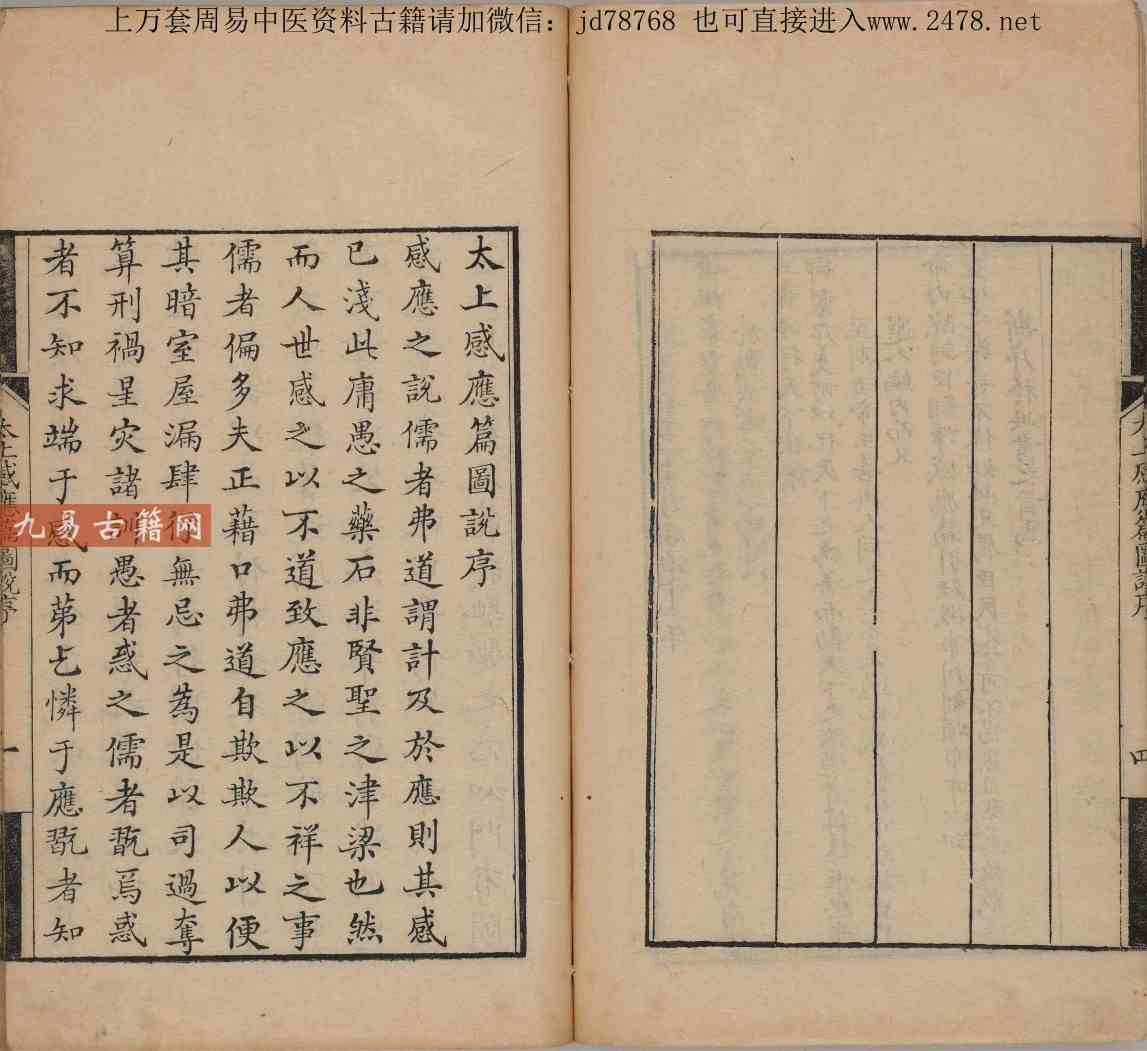 上万套周易中医资料古籍请加微信：jd78768 也可直接进入www.2478.net
太上感應篇圖説序
四
太上感應篇圖説序
感應之説儒者弗道謂計及於應則其感
已淺此庸愚之藥石非賢聖之津梁也然
而人世感之以不道致應之以不祥之事
儒者偏多夫正藉口弗道自欺欺人以便
其暗室屋漏肆行無忌之為是以司過奪
算刑禍星灾諸訓愚者惑之儒者翫焉惑
者不知求端于感而第乞憐于應翫者知
太上感應篇圖説序
一
九易古籍网